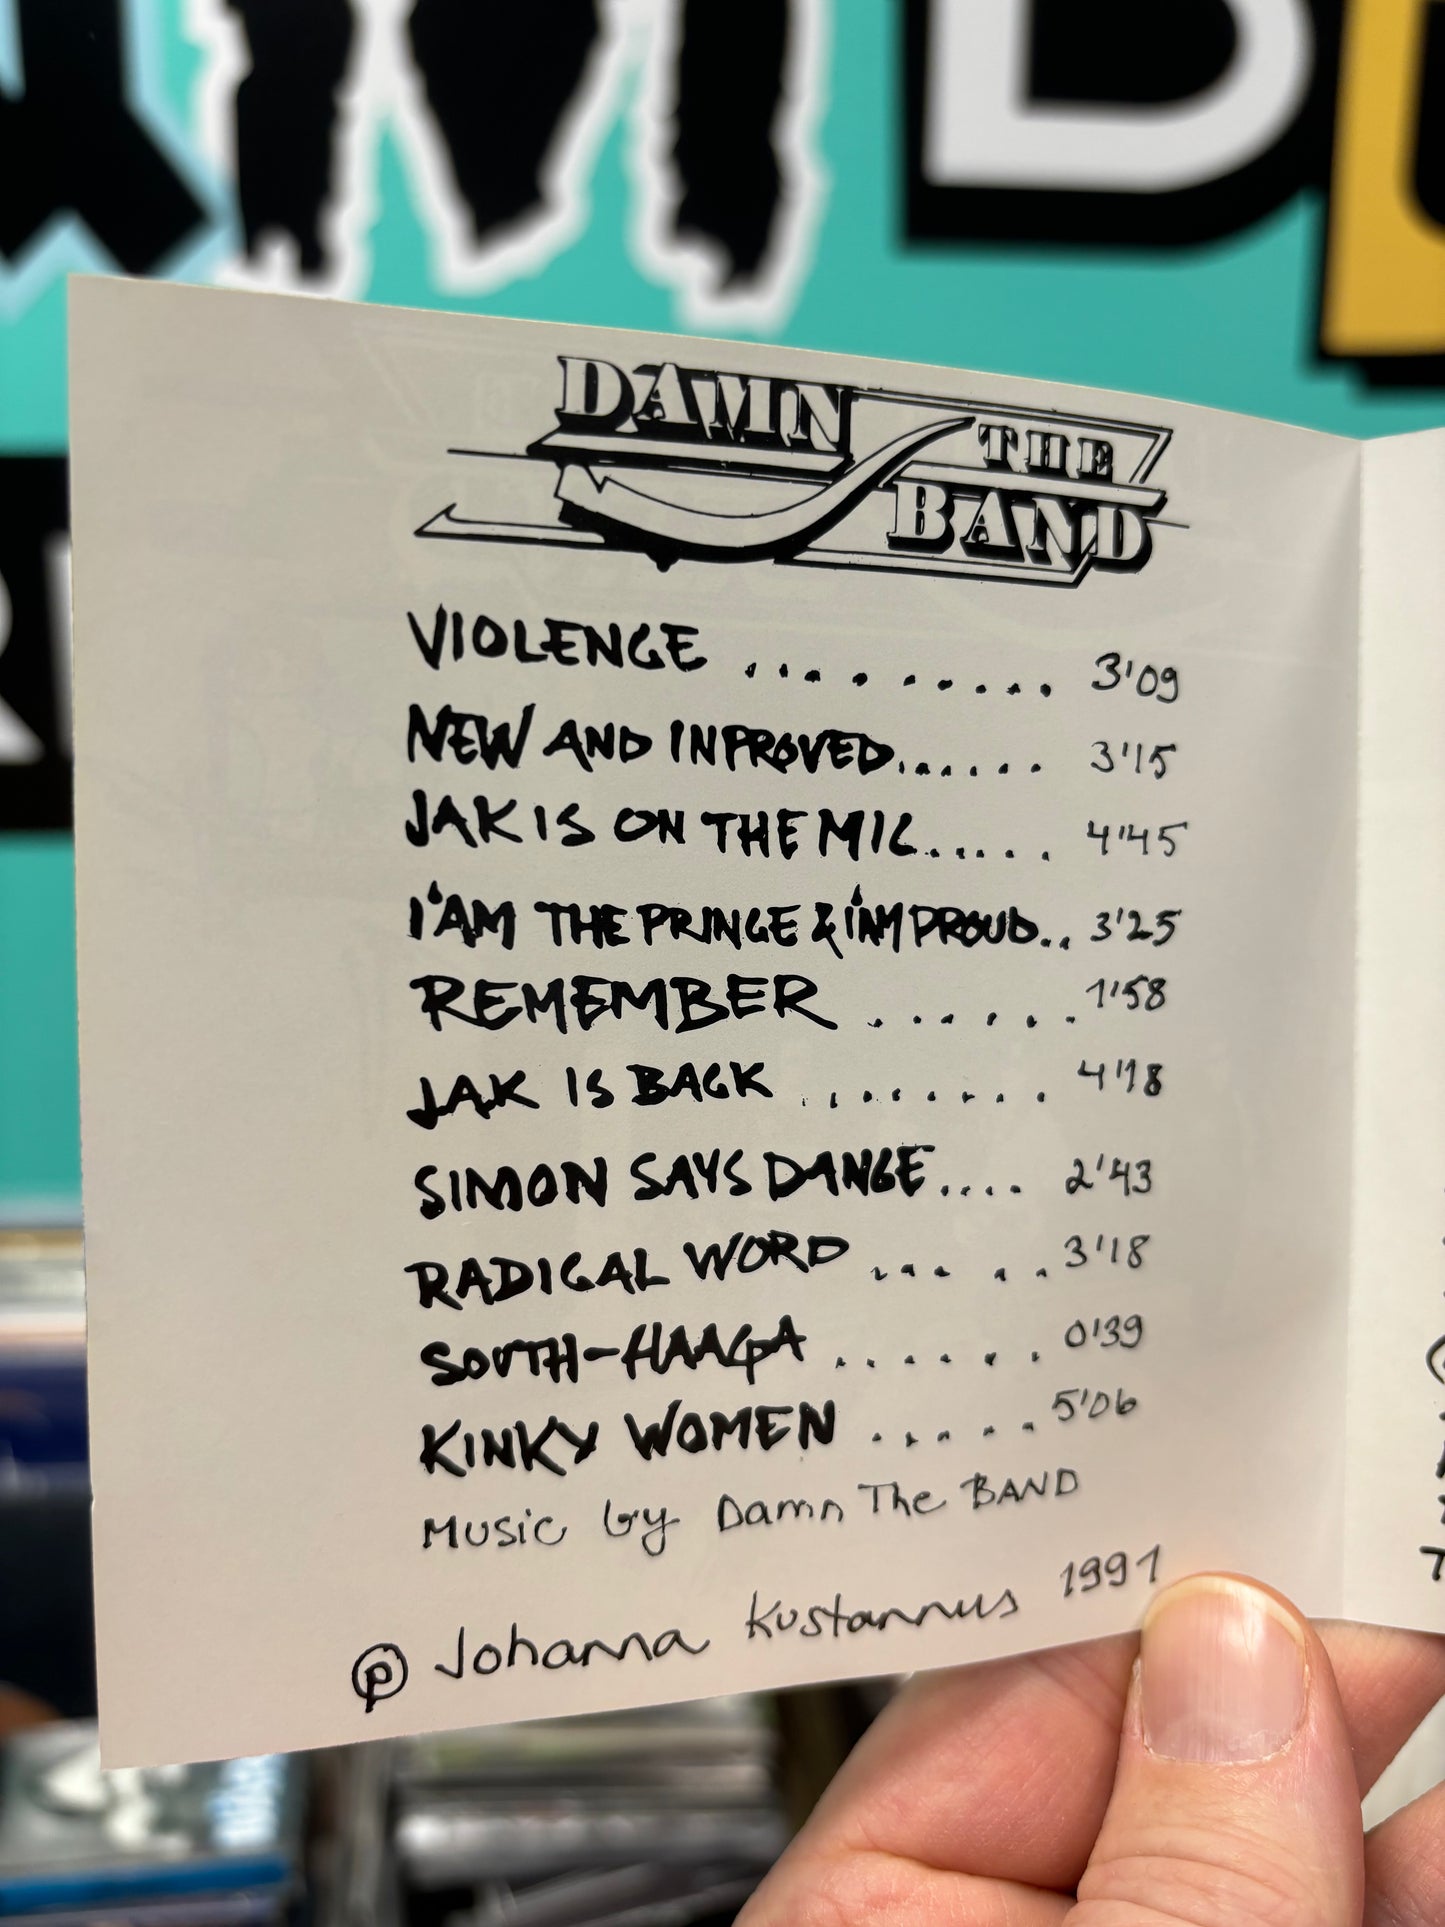 DAMN
THE
BAND
VIOLENCE .......... 3'09
NEW AND INPROVED...... 3'15
JAK IS ON THE MIC..... 4'45
I'AM THE PRINCE & I'AM PROUD.. 3'25
REMEMBER ...... 1'58
JAK IS BACK ........ 4'18
SIMON SAYS DANCE.... 2'43
RADICAL WORD ..... 3'18
SOUTH-HAAGA ...... 0'39
KINKY WOMEN ..... 5'06
MUSIC by Damn The BAND
℗ Johanna Kustannus 1991